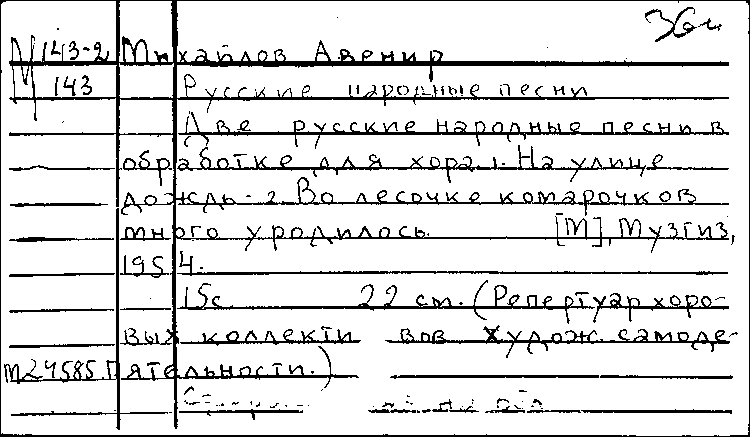 М 143-2 Михайлов Авенир
143 Русские народные песни
Две русские народные песни в
обработке для хора 1. На улице
дождь - 2. Во лесочке комарочков
много уродилось [М], Музгиз,
1954.
15с 22 см. (Репертуар хоро-
вых коллективов худож. самоде-
m24585 ятельности.)